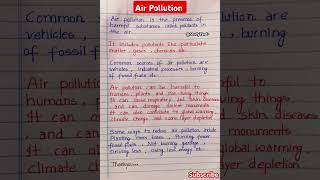 Air Pollution
Air pollution is the presence of
harmful substances called pollutants in
the air.
It includes pollutants like particulate
matter, gases, chemicals etc.
Common sources of air pollution are
vehicles, industrial processes, burning
of fossil fuels etc.
Air pollution can be harmful to
humans, plants and other living things.
It can cause respiratory and skin diseases
and can damage ancient monuments
It can also contribute to global warming,
climate change and ozone layer depletion.
Some ways to reduce air pollution include
Planting more trees, Avoiding
fossil fuels, Not burning garbage,
driving less, using less energy etc.
Thankyou
Common
vehicles
of fossil f
are
burning
Air pollution
humans,
It can ca
and can
It can also
climate ch
to
things.
skin diseases
monuments
warming,
depletion.
Subscribe